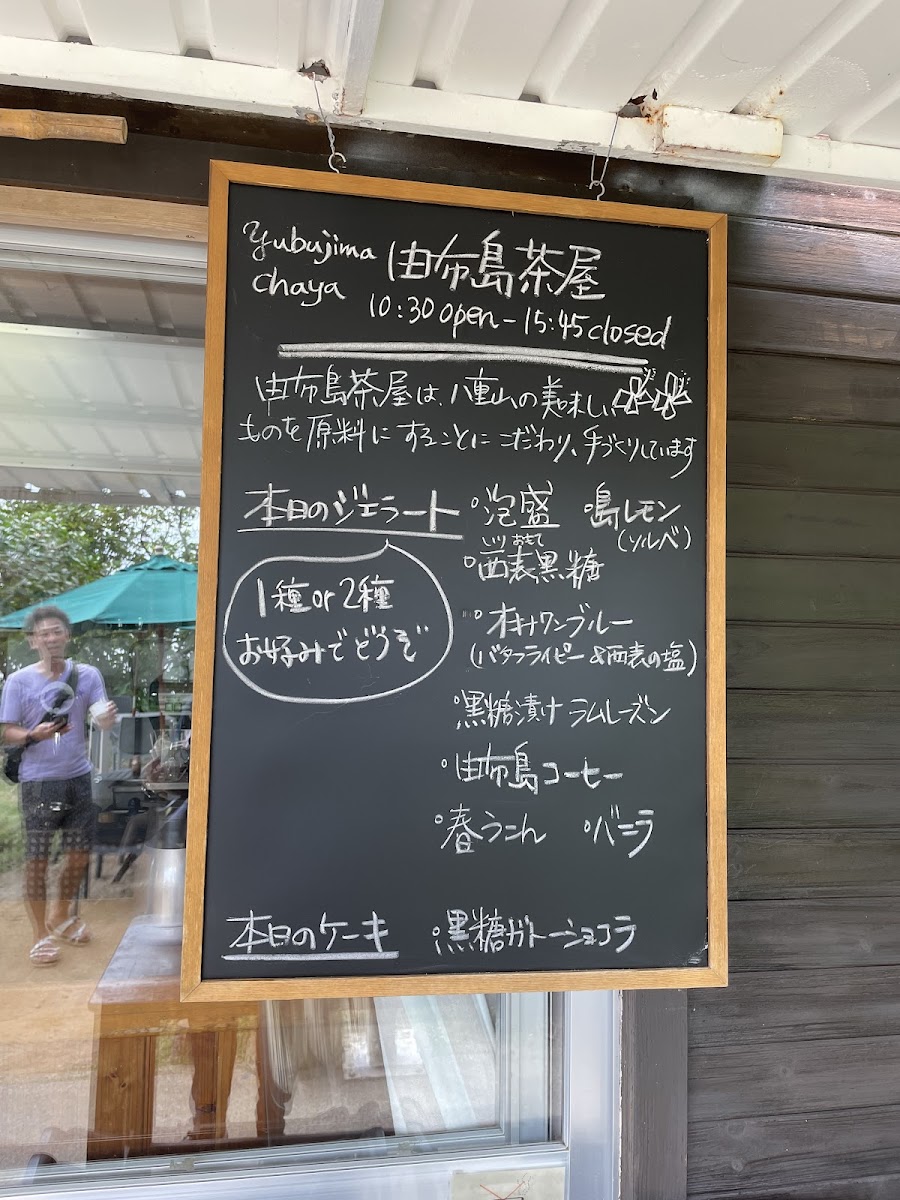 Yubujima 由布島茶屋
chaya
10:30 open - 15:45 closed
由布島茶屋は、八重山の美味しい
ものを原料にすることにこだわり、手づくりしています
本日のジェラート
1種or2種
お好みでどうぞ
°泡盛 °島レモン
(ソルベ)
いりおもて
°西表黒糖
°オキナワンブルー
(バタフライピー&西表の塩)
°黒糖漬けラムレーズン
°由布島コーヒー
°春うこん °バニラ
本日のケーキ °黒糖ガトーショコラ